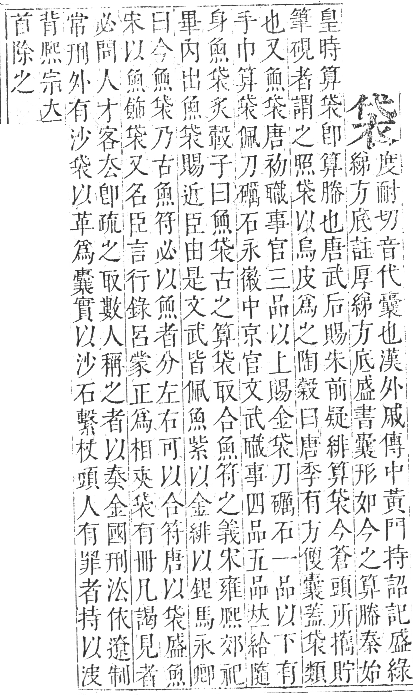 袋度耐切音代囊也漢外戚傳中黃門持詔記盛綠
綈方底註厚綈方底盛書囊形如今之算幐秦始
皇時算袋卽算幐也唐武后賜朱前疑緋算袋今蒼頭所攜貯
筆硯者謂之照袋以烏皮爲之陶穀曰唐季有方便囊蓋袋類
也又魚袋唐初職事官三品以上賜金袋刀礪石一品以下有
手巾算袋佩刀礪石永徽中京官文武職事四品五品並給隨
身魚袋炙轂子曰魚袋古之算袋取合魚符之義宋雍熙郊祀
畢內出魚袋賜近臣由是文武皆佩魚紫以金緋以銀馬永卿
曰今魚袋乃古魚符必以魚者分左右可以合符唐以袋盛魚
宋以魚飾袋又名臣言行錄呂蒙正爲相夾袋有冊凡謁見者
必問人才客去卽疏之取數人稱之者以奏金國刑法依遼制
常刑外有沙袋以革爲囊實以沙石繫杖頭人有罪者持以波
背熙宗大
首除之